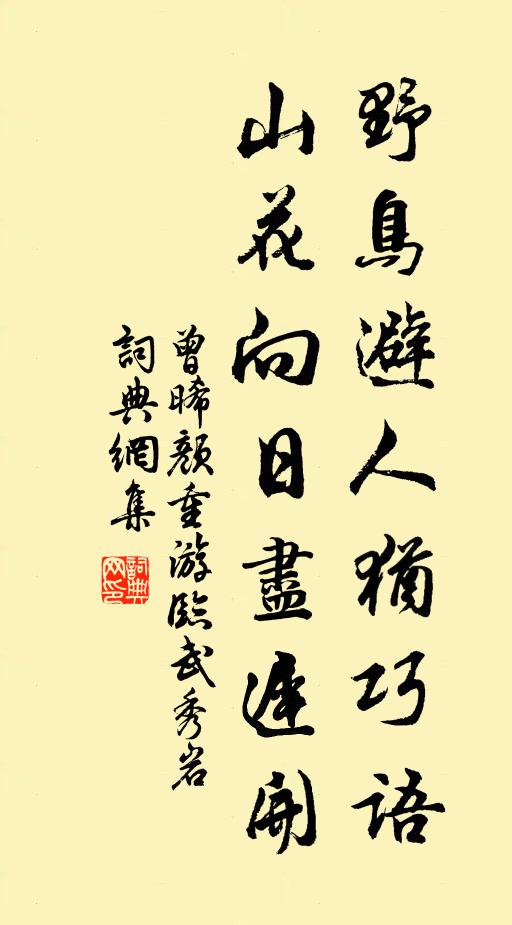 野鳥避人猶巧語
山花向日盡遲開
曾晞顏重游臨武秀岩
詞典網集
詞典网印